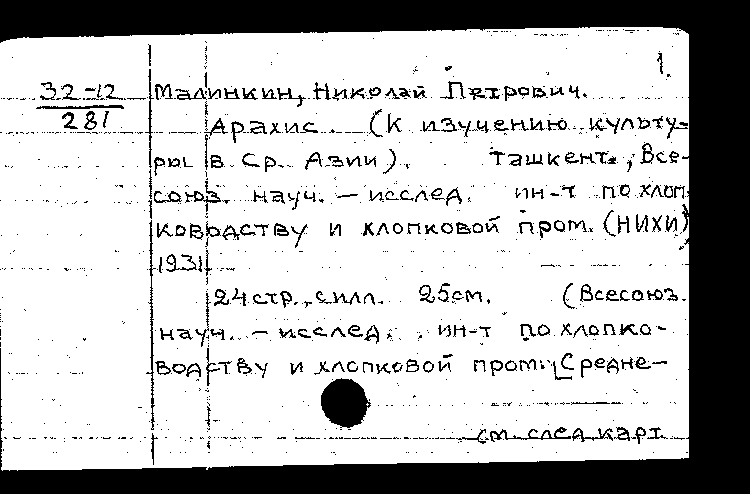 1.
32-12
281
Малинкин, Николай Петрович.
Арахис. (К изучению культу-
ры в Ср. Азии). Ташкент., Все-
союз. науч. – исслед. ин-т по хлоп
ководству и хлопковой пром. (НИХИ)
1931
24 стр., с илл. 25 см. (Всесоюз.
науч. – исслед. ин-т по хлопко-
водству и хлопковой пром. Средне-
см. след. карт